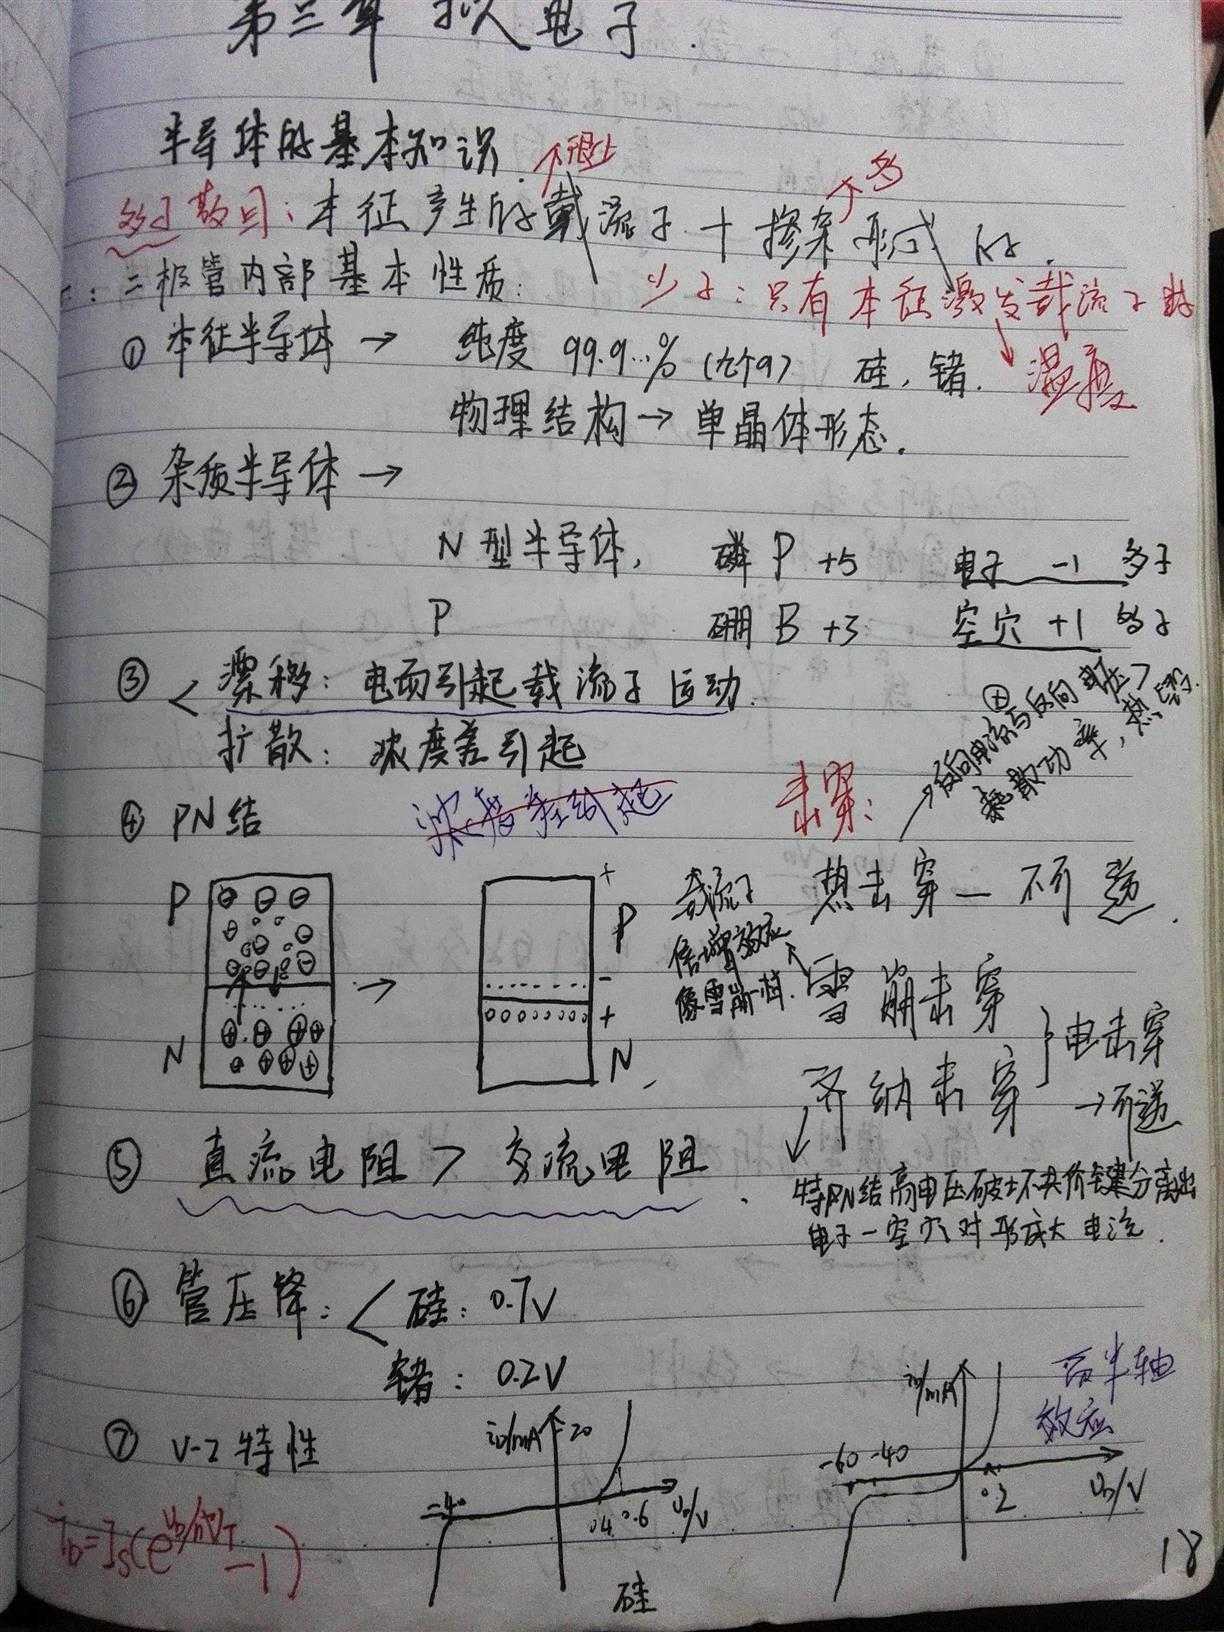 第三章 拟人电子.
半导体的基本知识.
↗很少
↗多
多子数目: 本征产生的载流子 + 掺杂形成的.
二极管内部基本性质:
少子: 只有本征激发载流子
↘温度
① 本征半导体 → 纯度 99.9...% (九个9) 硅, 锗.
物理结构 → 单晶体形态.
② 杂质半导体 →
N型半导体, 磷 P +5 电子 -1 多子
P 硼 B +3 空穴 +1 多子
③ < 漂移: 电场引起载流子运动.
扩散: 浓度差引起
反向电流与反向电压>
耗散功率, 热
④ PN结
击穿:
热击穿 — 不可逆.
载流子
倍增效应
像雪崩一样.
雪崩击穿
齐纳击穿
} 电击穿
→可逆
特PN结高电压破坏共价键分离出
电子-空穴对形成大电流.
P
N
→
+
P
-
+
N
⑤ 直流电阻 > 交流电阻.
⑥ 管压降: < 硅: 0.7V
锗: 0.2V
⑦ V-I特性
iD/mA
20
-40
0.4 0.6
UD/V
硅
iD/mA
-60 -40
0.2
UD/V
半轴
效应
iD=Is(e^{UD/nVT}-1)
18